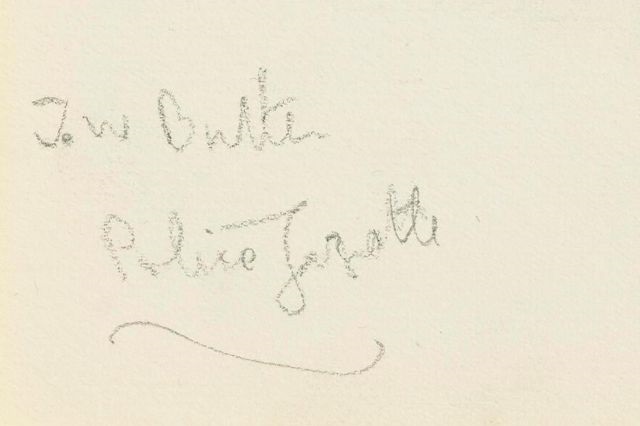 J. W Butler
Police Gazette